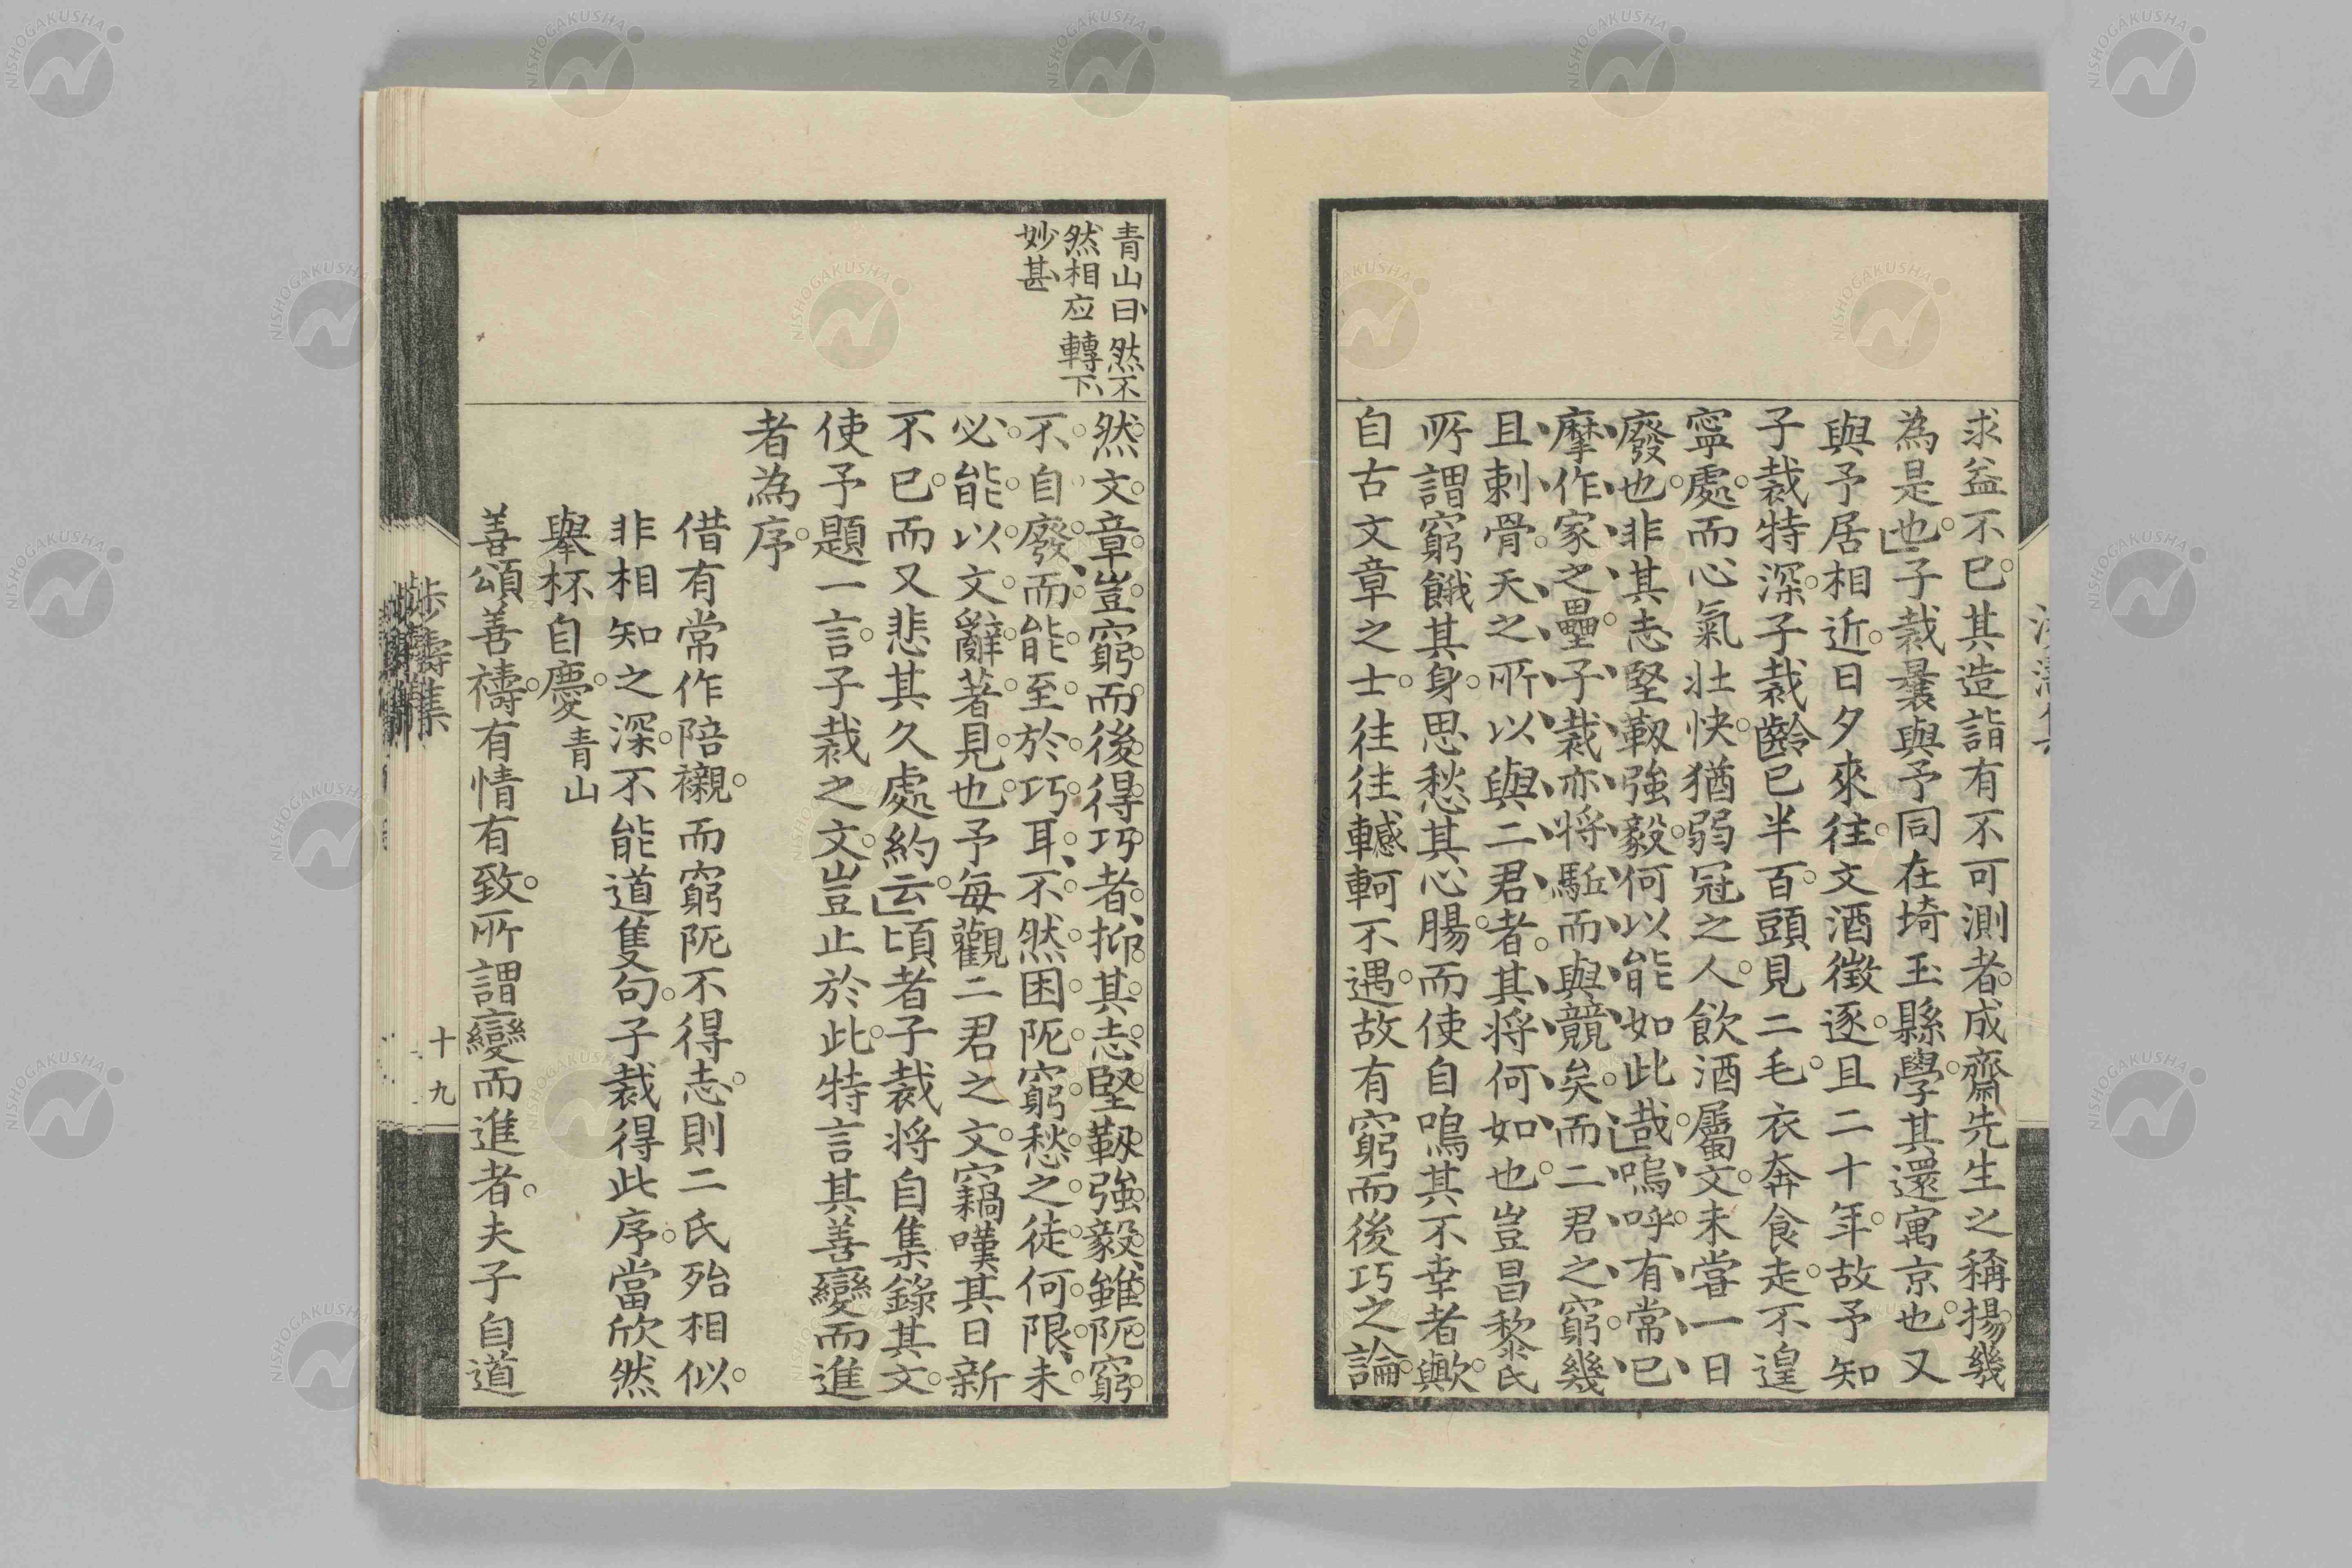 求益不已其造詣有不可測者成齋先生之稱揚幾
為是也子裁曩與予同在埼玉縣學其還寓京也又
與予居相近日夕來往文酒徵逐且二十年故予知
子裁特深子裁齡已半百頭見二毛衣奔食走不遑
寧處而心氣壯快猶弱冠之人飲酒屬文未嘗一日
廢也非其志堅靱強毅何以能如此哉嗚呼有常已
摩作家之壘子裁亦將駈而與競矣而二君之窮幾
且刺骨天之所以與二君者其將何如也豈昌黎氏
所謂窮餓其身思愁其心腸而使自鳴其不幸者歟
自古文章之士往往轗軻不遇故有窮而後巧之論
青山曰然不
然相应轉下
妙甚
然文章豈窮而後得巧者抑其志堅靱強毅雖阨窮
不自廢而能至於巧耳不然困阨窮愁之徒何限未
必能以文辭著見也予每觀二君之文竊嘆其日新
不已而又悲其久處約云頃者子裁將自集錄其文
使予題一言子裁之文豈止於此特言其善變而進
者為序
借有常作陪襯而窮阨不得志則二氏殆相似
非相知之深不能道隻句子裁得此序當欣然
舉杯自慶青山
善頌善禱有情有致所謂變而進者夫子自道
十九